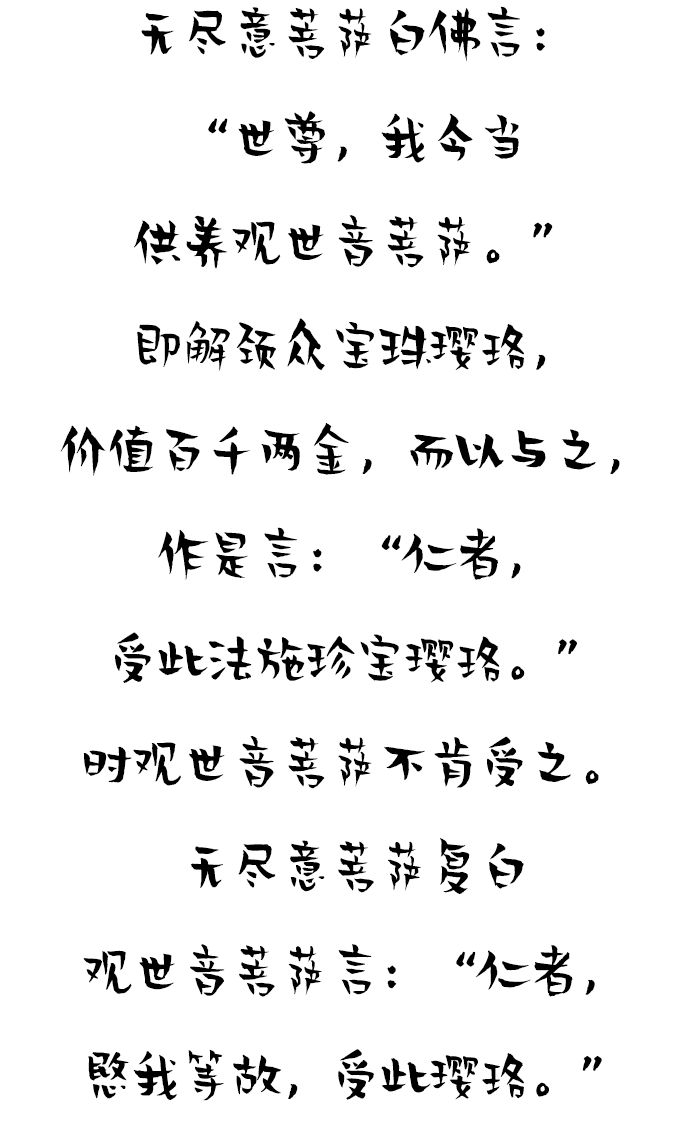 无尽意菩萨白佛言：
“世尊，我今当
供养观世音菩萨。”
即解颈众宝珠璎珞，
价值百千两金，而以与之，
作是言：“仁者，
受此法施珍宝璎珞。”
时观世音菩萨不肯受之。
无尽意菩萨复白
观世音菩萨言：“仁者，
愍我等故，受此璎珞。”